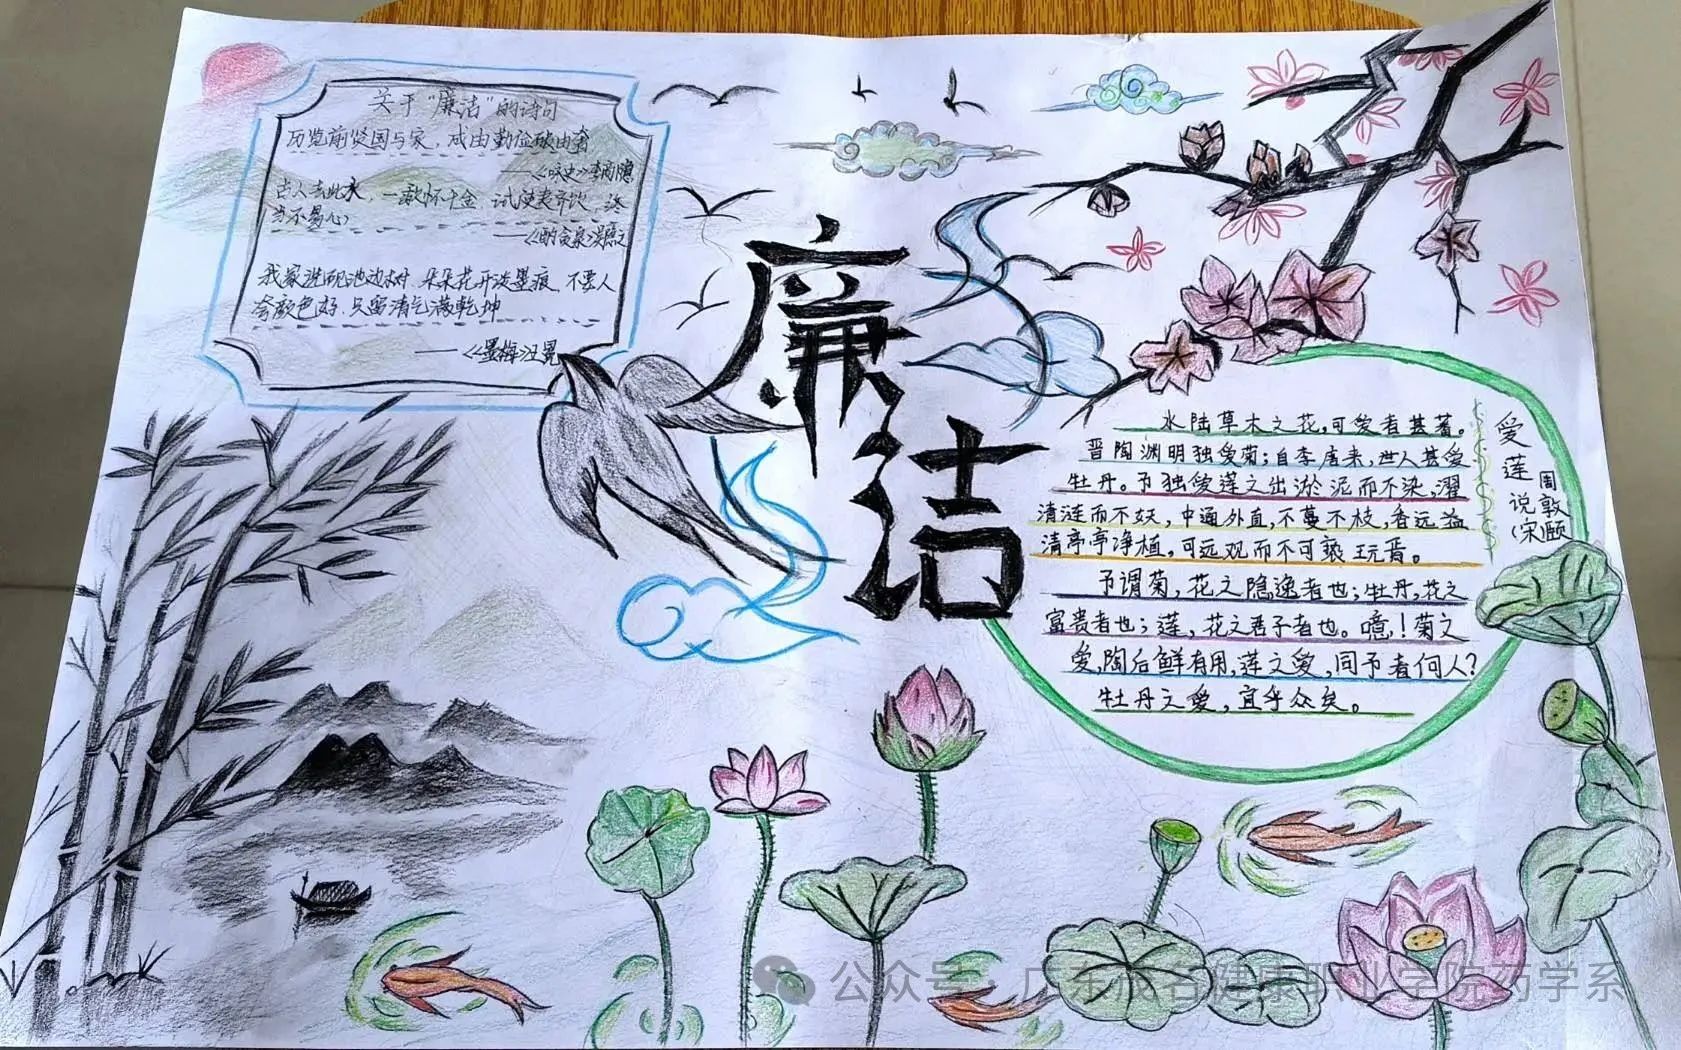 关于“廉洁”的诗句
历览前贤国与家，成由勤俭破由奢
——《咏史》李商隐
古人去此水，一歃怀千金，试使夷齐饮，终
当不易心
——《酌贪泉》
我家洗砚池边树，朵朵花开淡墨痕，不要人
夸颜色好，只留清气满乾坤
——《墨梅》
廉洁
爱莲说
(宋)周敦颐
水陆草木之花，可爱者甚蕃。
晋陶渊明独爱菊；自李唐来，世人甚爱
牡丹。予独爱莲之出淤泥而不染，濯
清涟而不妖，中通外直，不蔓不枝，香远益
清亭亭净植，可远观而不可亵玩焉。
予谓菊，花之隐逸者也；牡丹，花之
富贵者也；莲，花之君子者也。噫！菊之
爱，陶后鲜有用，莲之爱，同予者何人？
牡丹之爱，宜乎众矣。
公众号·广东茂名健康职业学院药学系